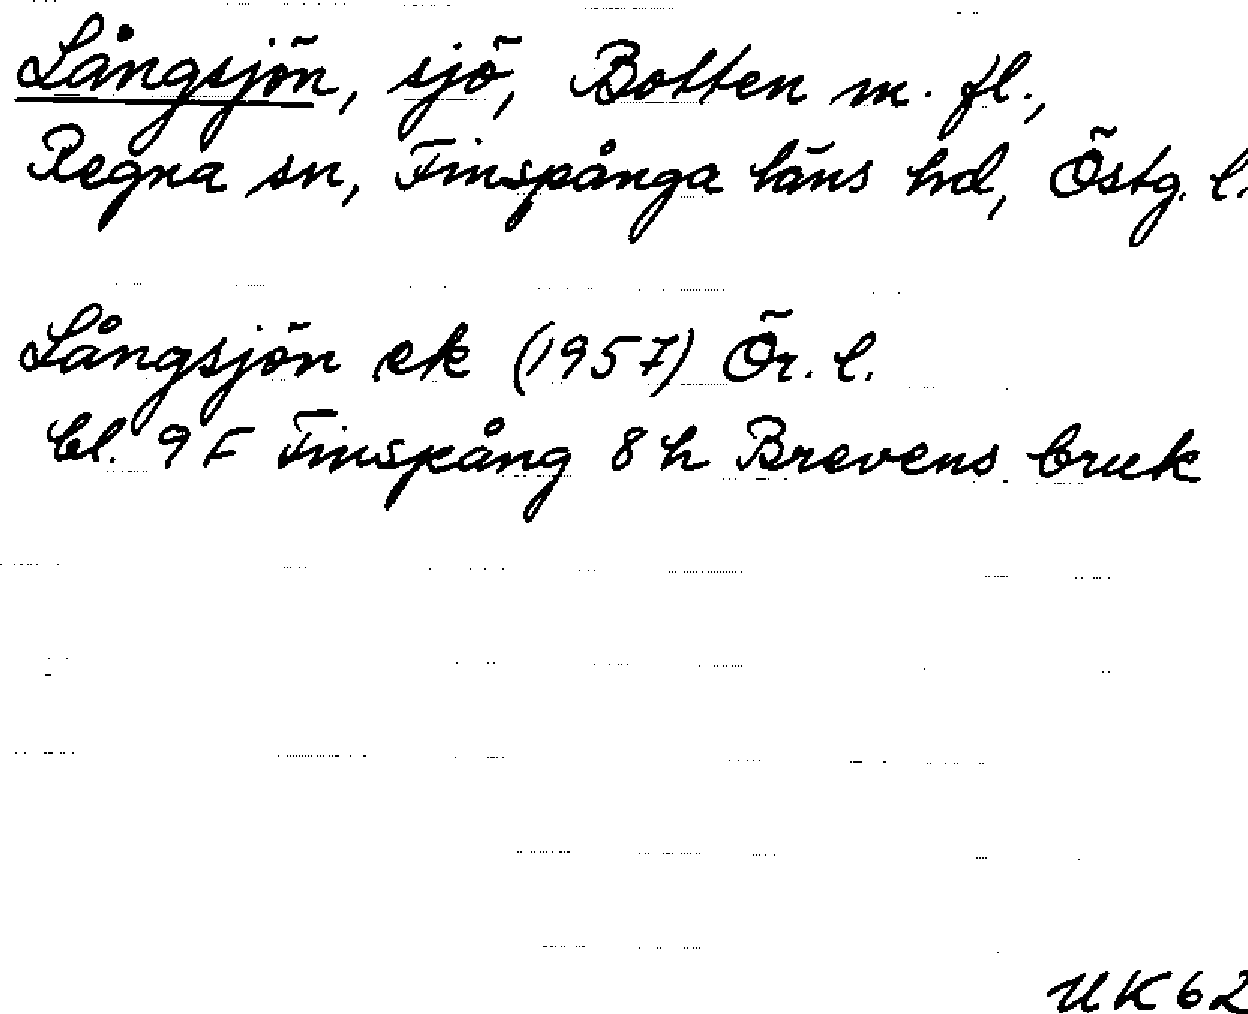 Långsjön, sjö, Botten m. fl.,
Regna sn, Finspånga läns hd, Östg. l.
Långsjön ek (1957) Ör. l.
bl. 9F Finspång 8h Brevens bruk
UK62